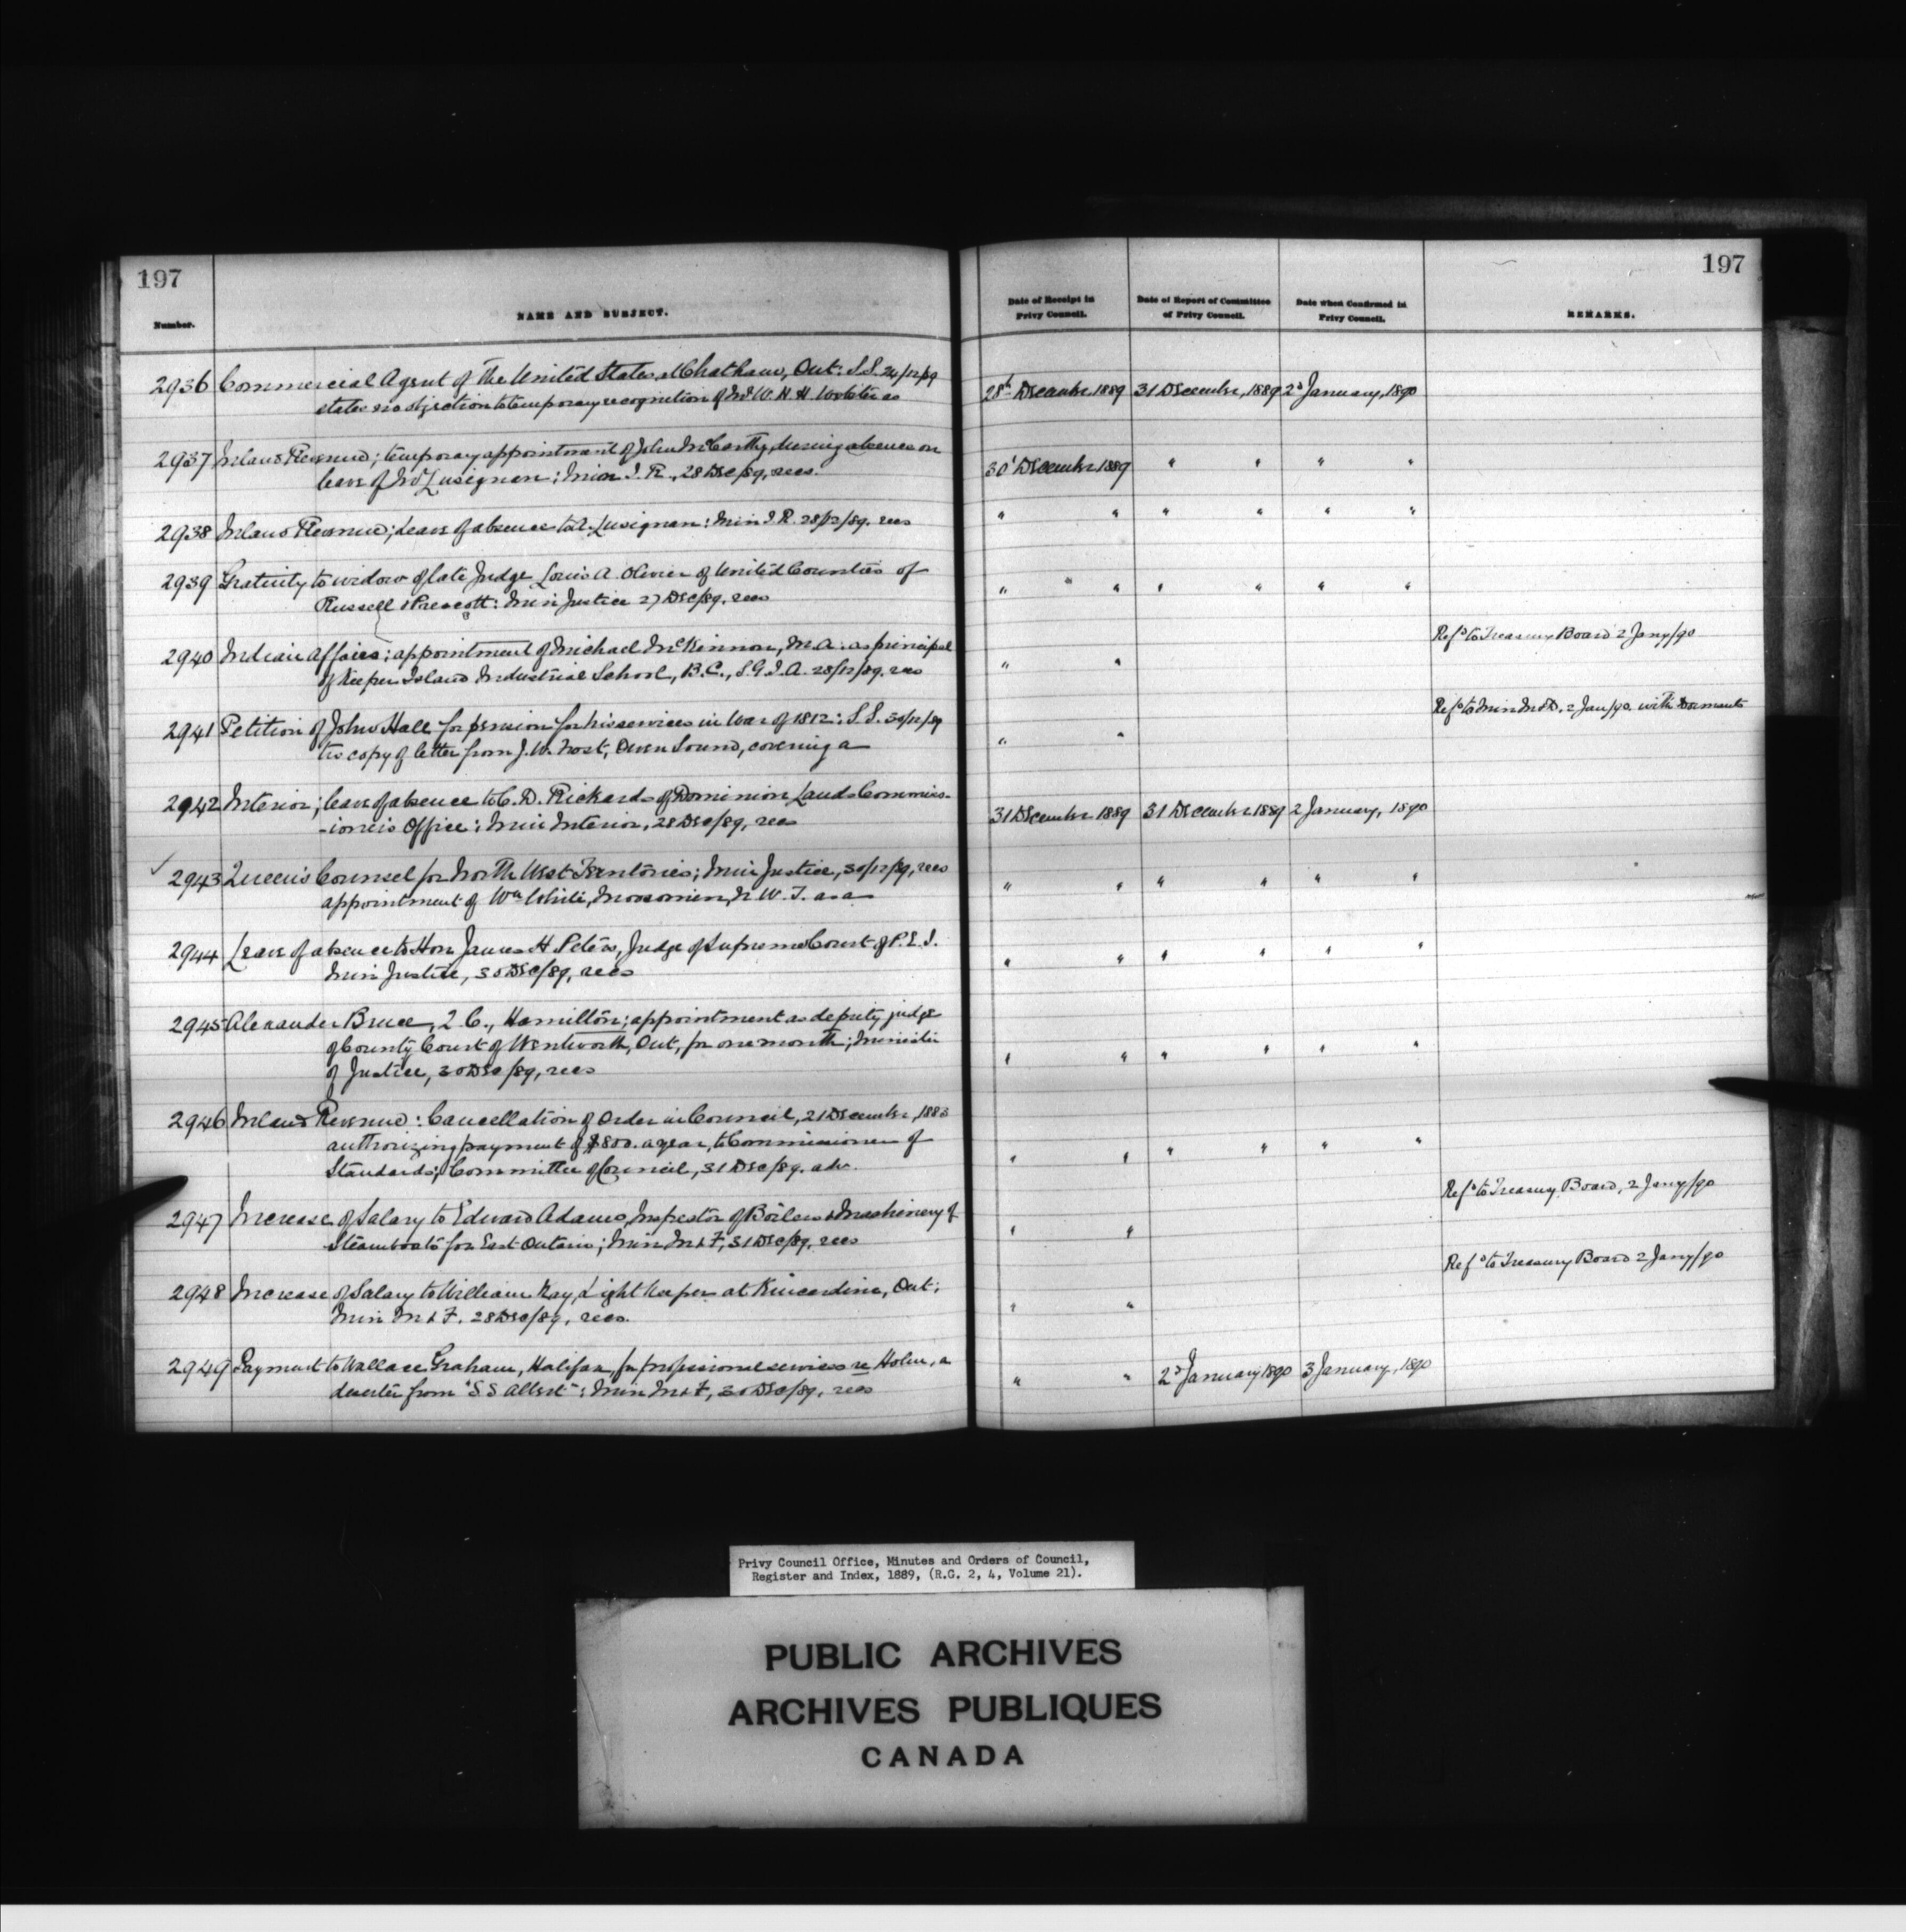 197
197
Number.
NAME AND SUBJECT.
Date of Receipt in
Privy Council.
Date of Report of Committee
of Privy Council.
Date when Confirmed in
Privy Council.
REMARKS.
2936 Commercial Agent of the United States, at Chatham, Ont: S.S. 24/12/89
states no objection to temporary recognition of Mr W. H. H. Webster as
28th December 1889 31 December, 1889 2d January, 1890
2937 Inland Revenue; temporary appointment of John McCarthy, during absence on
leave of Mr Lusignan: Min I. R., 28 Dec/89, recs.
30' December 1889 " " " "
2938 Inland Revenue; Leave of absence to A. Lusignan: Min I R. 28/12/89. recs
" " " " " "
2939 Gratuity to widow of late Judge Louis A. Olivier of United Counties of
Russell & Prescott: Min Justice 27 Dec/89, recs
" " " " " " "
2940 Indian Affairs; appointment of Michael McKinnon, M.A. as principal
of Keeper Island Industrial School, B.C., S.G.I.A. 28/12/89. recs
" "
Refd to Treasury Board 2 Jany/90
2941 Petition of John Hall for pension for his services in War of 1812: S.S. 30/12/89
trs copy of letter from J. W. Frost, Owen Sound, covering a
" "
Refd to Min M&D. 2 Jan/90. with documents
2942 Interior; leave of absence to C. D. Rickards of Dominion Lands Commiss-
-ioner's Office: Min Interior, 28 Dec/89, recs
31 December 1889 31 December 1889 2 January, 1890
2943 Queen's Counsel for North West Territories; Min Justice, 30/12/89, recs
appointment of Wm White, Moosomin, N. W. T. as a
" " " " " "
2944 Leave of absence to Hon James H Peters, Judge of Supreme Court of P.E.I.
Min Justice, 30 Dec/89, recs
" " " " " "
2945 Alexander Bruce, Q.C., Hamilton; appointment as deputy judge
of County Court of Wentworth, Ont, for one month; Minister
of Justice, 30 Dec/89, recs
" " " " " "
2946 Inland Revenue: Cancellation of Order in Council, 21 December, 1883
authorizing payment of $800. a year, to Commissioner of
Standards; Committee of Council, 31 Dec/89. adv.
" " " " " "
2947 Increase of Salary to Edward Adams, Inspector of Boilers & Machinery of
Steamboats for East Ontario; Min M & F, 31 Dec/89, recs
" "
Refd to Treasury Board, 2 Jany/90
2948 Increase of Salary to William Kay, Light Keeper at Kincardine, Ont:
Min M & F. 28 Dec/89, recs.
" "
Refd to Treasury Board 2 Jany/90
2949 Payment to Wallace Graham, Halifax, for professional services re Holm, a
deserter from "S.S Albert": Min M & F, 30 Dec/89, recs
" " 2d January 1890 3 January, 1890
Privy Council Office, Minutes and Orders of Council,
Register and Index, 1889, (R.G. 2, 4, Volume 21).
PUBLIC ARCHIVES
ARCHIVES PUBLIQUES
CANADA